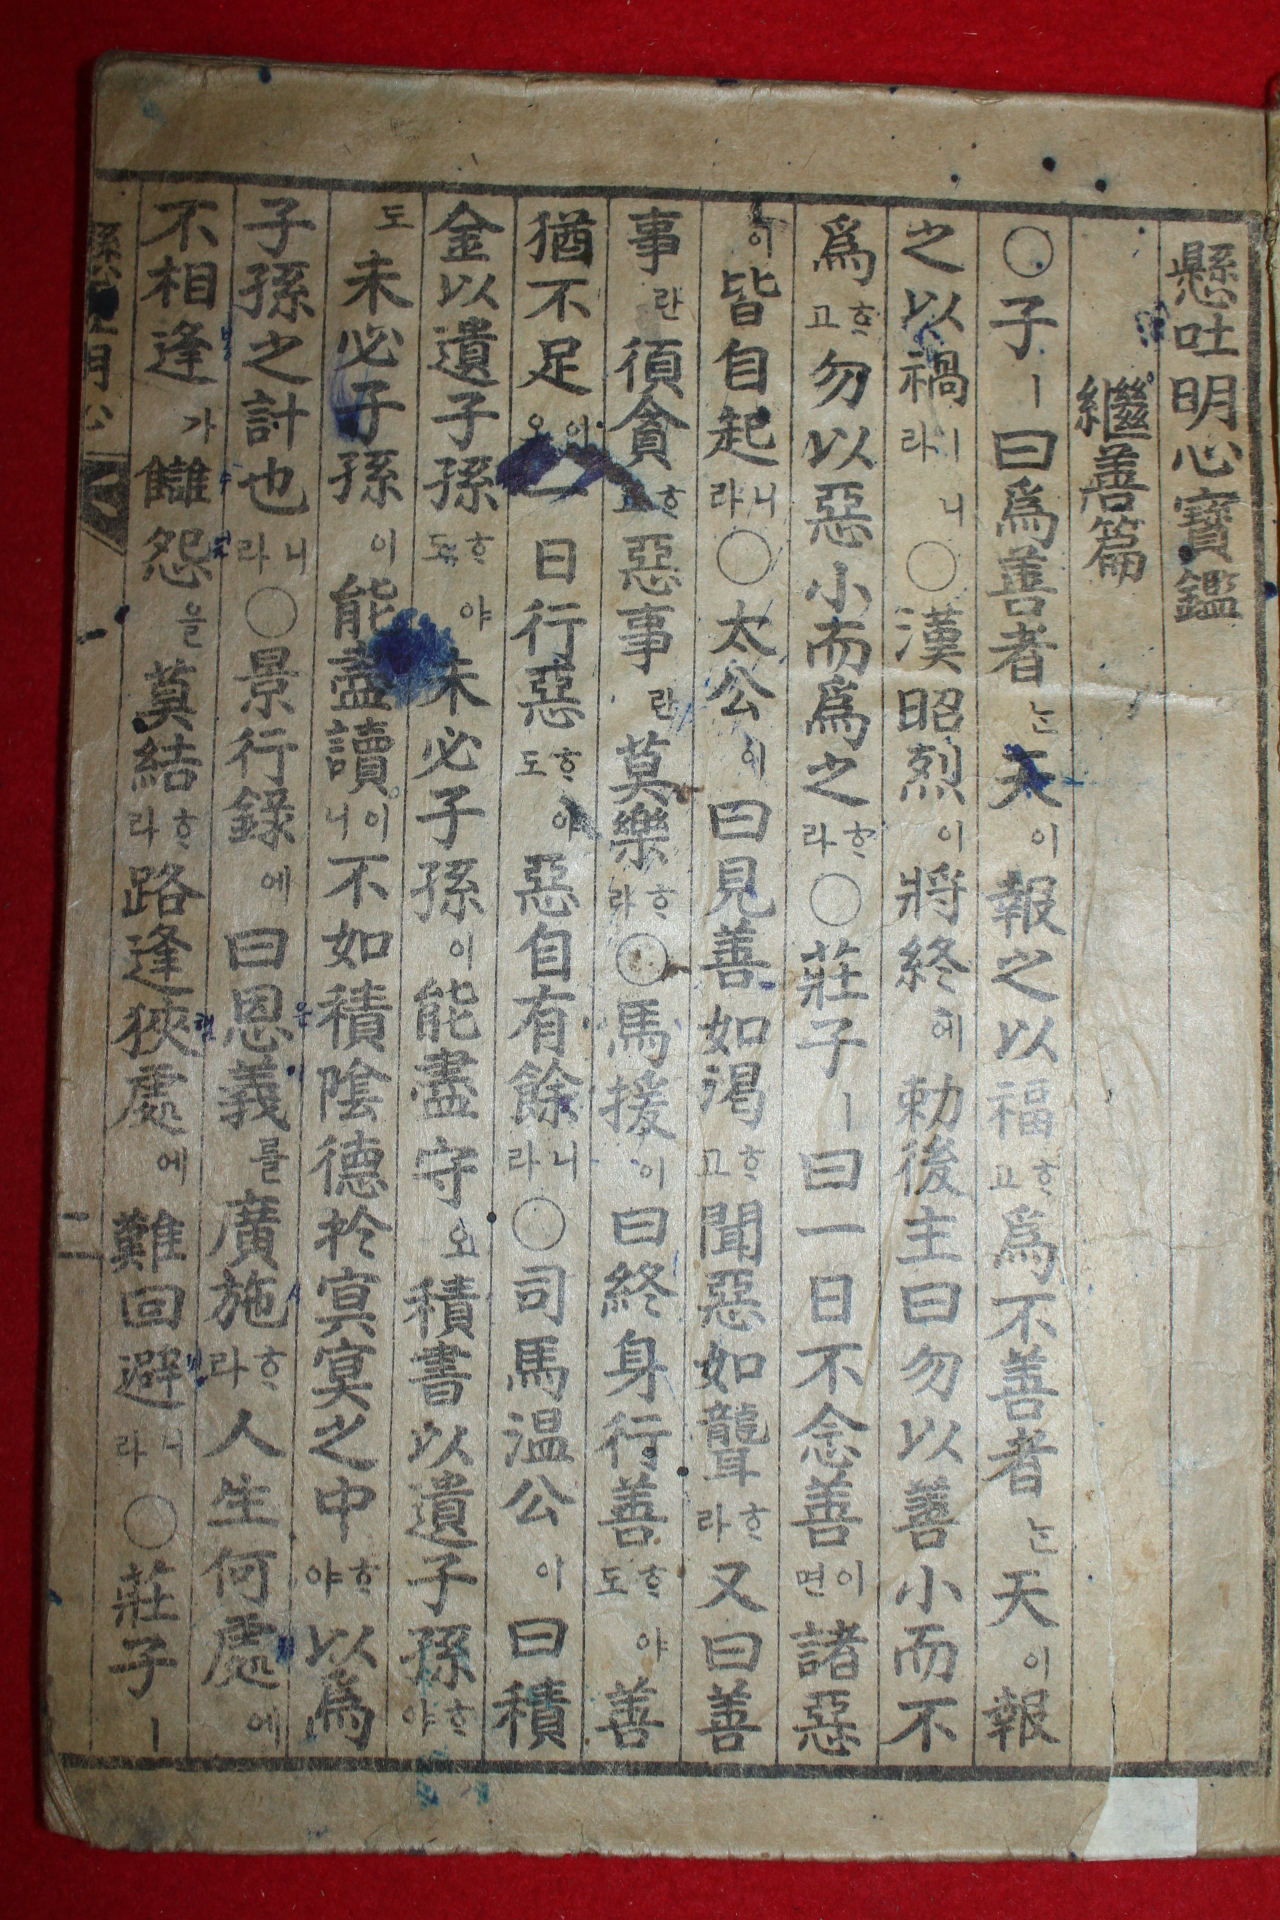 懸吐明心寶鑑
繼善篇
○子ㅣ曰爲善者는天이報之以福ᄒᆞ고爲不善者는天이報
之以禍ㅣ니라○漢昭烈이將終에勅後主曰勿以善小而不
爲ᄒᆞ고勿以惡小而爲之ᄒᆞ라○莊子ㅣ曰一日不念善이면諸惡
이皆自起니라○太公이曰見善如渴ᄒᆞ고聞惡如聾ᄒᆞ라又曰善
事란須貪ᄒᆞ고惡事란莫樂ᄒᆞ라○馬援이曰終身行善ᄒᆞ야도善
猶不足이오一日行惡ᄒᆞ야도惡自有餘니라○司馬温公이曰積
金以遺子孫ᄒᆞ야도未必子孫이能盡守오積書以遺子孫ᄒᆞ야
도未必子孫이能盡讀이니不如積陰德於冥冥之中ᄒᆞ야以爲
子孫之計也니라○景行錄에曰恩義를廣施ᄒᆞ라人生何處에
不相逢가讎怨을莫結ᄒᆞ라路逢狹處에難回避니라○莊子ㅣ
二